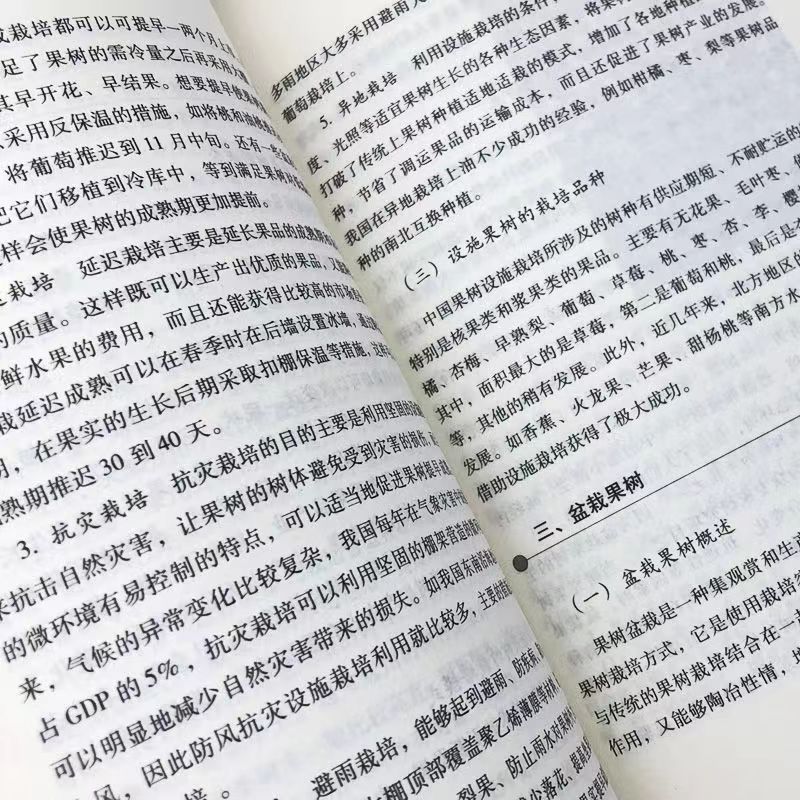 栽培都可以可提早一两个月上
足了果树的需冷量之后再采
其早开花、早结果。想要提早
采用反保温的措施，如将桃和油
将葡萄推迟到11月中旬。还有一些
把它们移植到冷库中，等到满足果树
样会使果树的成熟期更加提前。
栽培 延迟栽培主要是延长果品的成熟
的质量。这样既可以生产出优质的果品，又
鲜水果的费用，而且还能获得比较高的市
栽延迟成熟可以在春季时在后墙设置冰墙，通过
明，在果实的生长后期采取扣棚保温等措施，这样
熟期推迟30到40天。
3. 抗灾栽培 抗灾栽培的目的主要是利用坚固的
来抗击自然灾害，让果树的树体避免受到灾害的损伤，
的微环境有易控制的特点，可以适当地促进果树提早
来，气候的异常变化比较复杂，我国每年在气象灾害中
占GDP的5%，抗灾栽培可以利用坚固的棚架营造
可以明显地减少自然灾害带来的损失。如我国东南沿
风，因此防风抗灾设施栽培利用就比较多，主要的
避雨栽培，能够起到避雨、防
棚顶部覆盖聚乙烯薄膜
裂果、防止雨水对果树
减少落花、
多雨地区大多采用避雨
葡萄栽培上。
5. 异地栽培 利用设施栽培的条件，
度、光照等适宜果树生长的各种生态因素，将果
打破了传统上果树种植适地适栽的模式，增加了各地种植
种，节省了调运果品的运输成本，而且还促进了果树产业的发展。
我国在异地栽培上油不少成功的经验，例如柑橘、枣、梨等果树品
种的南北互换种植。
（三）设施果树的栽培品种
中国果树设施栽培所涉及的树种有供应期短、不耐贮运的
特别是核果类和浆果类的果品。主要有无花果、毛叶枣、
橘、杏梅、早熟梨、葡萄、草莓、桃、枣、杏、李、樱
其中，面积最大的是草莓，第二是葡萄和桃，最后是
等，其他的稍有发展。此外，近几年来，北方地区的
发展。如香蕉、火龙果、芒果、甜杨桃等南方水
借助设施栽培获得了极大成功。
三、盆栽果树
（一）盆栽果树概述
果树盆栽是一种集观赏和生
果树栽培方式，它是使用栽培
与传统的果树栽培结合在一
作用，又能够陶冶性情，